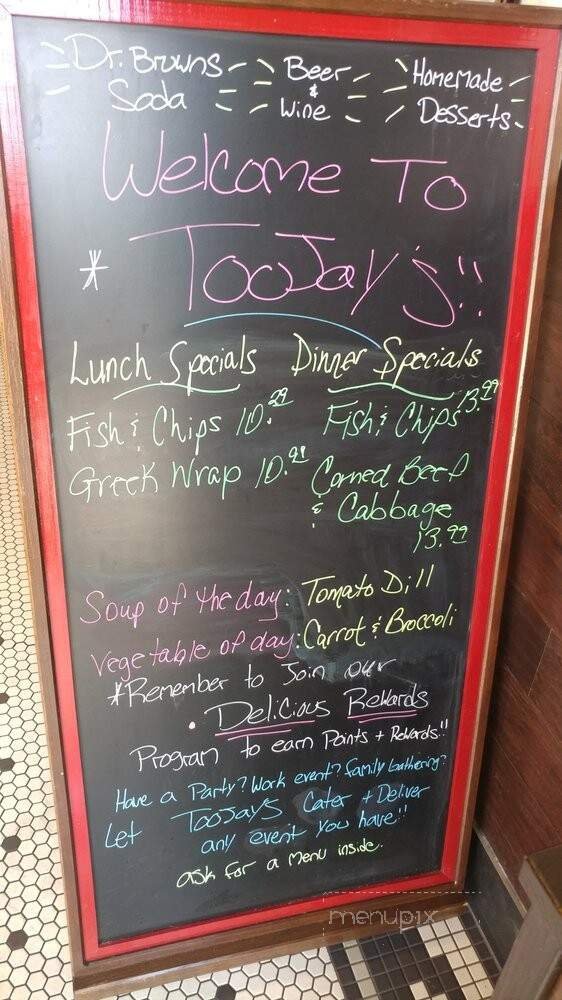 Dr. Browns Soda
Beer & Wine
HomeMade Desserts
Welcome To
* TooJay's!!
Lunch Specials
Fish & Chips 10.29
Greek Wrap 10.91
Dinner Specials
Fish & Chips 13.99
Corned Beef
& Cabbage
13.99
Soup of the day: Tomato Dill
Vegetable of day: Carrot & Broccoli
*Remember to Join our
• Delicious Rewards
Program to earn Points + Rewards!!
Have a Party? Work event? Family Gathering?
Let TooJay's Cater + Deliver
any event you have!!
ask for a menu inside.
menupix